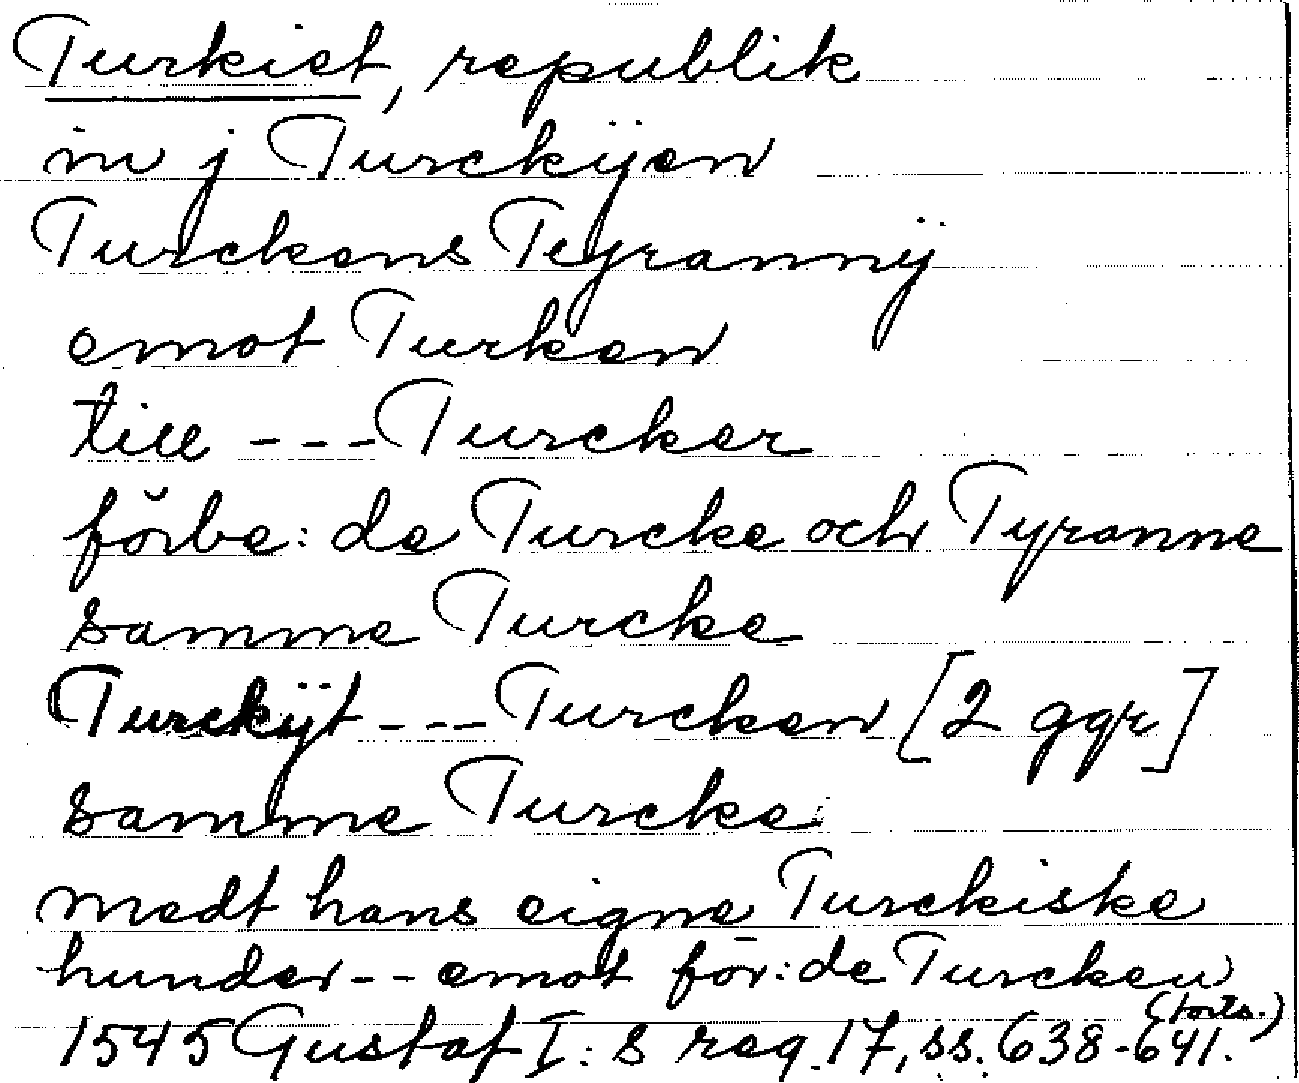 Turkiet, republik
in j Turckÿen
Turckens Teyrannÿ
emot Turken
till --- Turcker
förbe: de Turcke och Tyranne
samme Turcke
Turckÿt --- Turcken [2 ggr]
samme Turcke
medt hans eigne Turckiske
hunder -- emot för:de Turcken
(forts.)
1545 Gustaf I:s reg. 17, ss. 638-641.